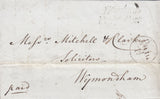 Messrs Mitchell & Clarke
Solicitors
Wymondham
paid